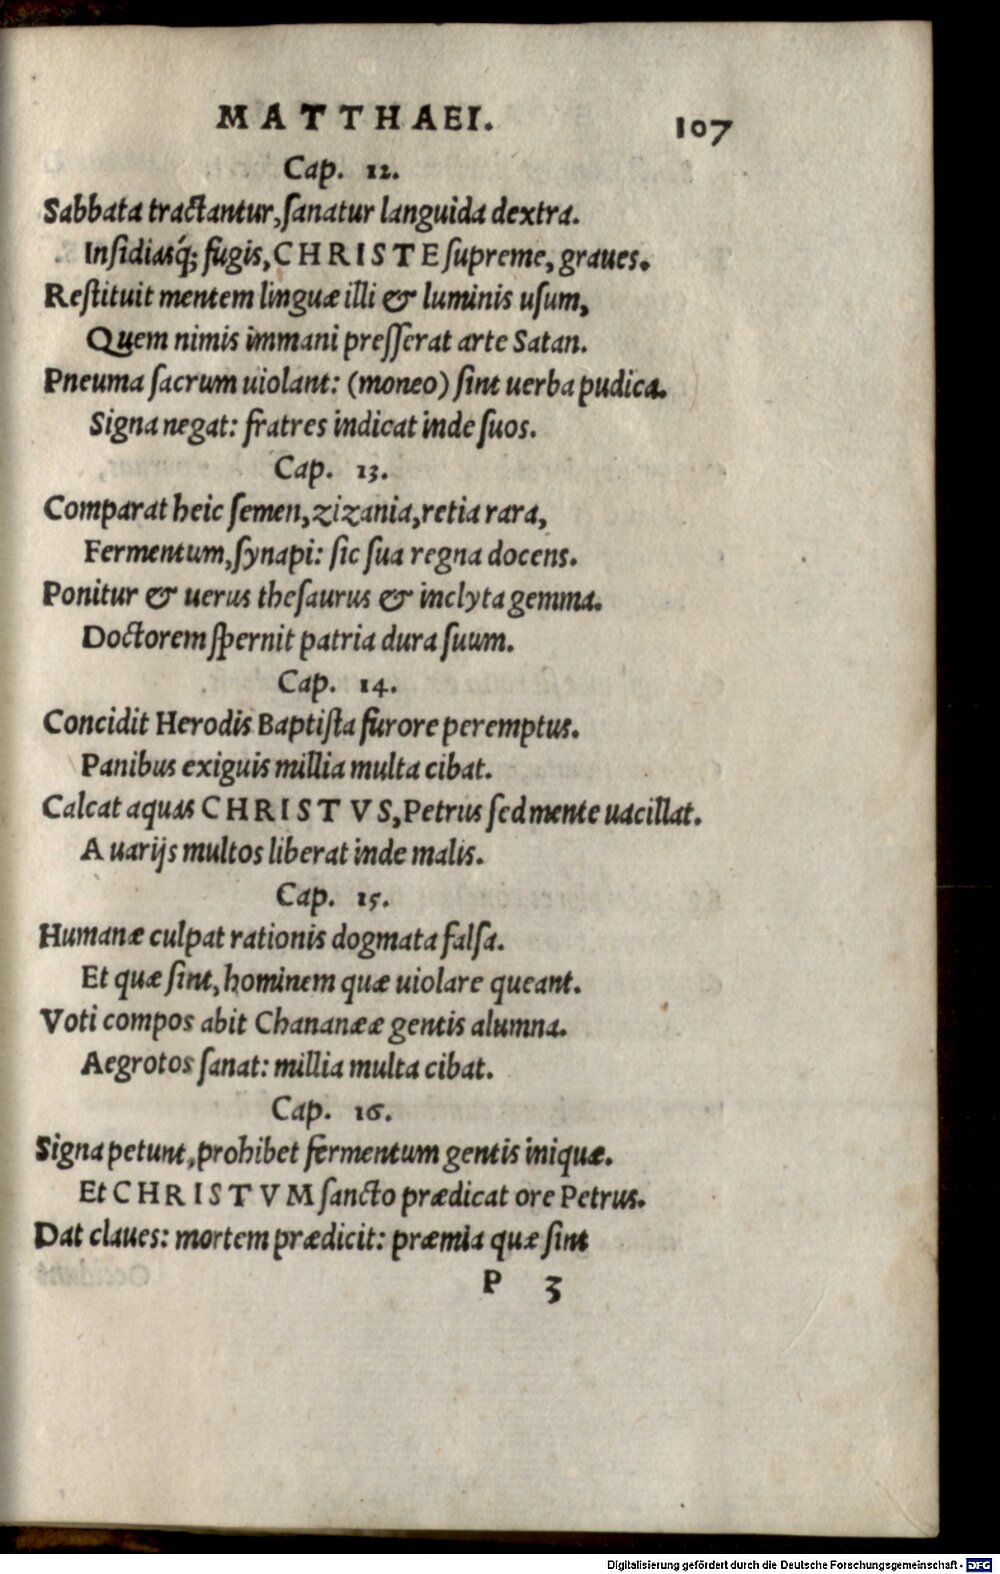 MATTHAEI. 107
Cap. 12.
Sabbata tractantur, ſanatur languida dextra.
Inſidiasq́; fugis, CHRISTE ſupreme, graues.
Reſtituit mentem linguæ illi & luminis uſum,
Quem nimis immani preſſerat arte Satan.
Pneuma ſacrum uiolant: (moneo) ſint uerba pudica.
Signa negat: fratres indicat inde ſuos.
Cap. 13.
Comparat heic ſemen, zizania, retia rara,
Fermentum, ſynapi: ſic ſua regna docens.
Ponitur & uerus theſaurus & inclyta gemma.
Doctorem ſpernit patria dura ſuum.
Cap. 14.
Concidit Herodis Baptiſta furore peremptus.
Panibus exiguis millia multa cibat.
Calcat aquas CHRISTVS, Petrus ſed mente uacillat.
A uarijs multos liberat inde malis.
Cap. 15.
Humanæ culpat rationis dogmata falſa.
Et quæ ſint, hominem quæ uiolare queant.
Voti compos abit Chananææ gentis alumna.
Aegrotos ſanat: millia multa cibat.
Cap. 16.
Signa petunt, prohibet fermentum gentis iniquæ.
Et CHRISTVM ſancto prædicat ore Petrus.
Dat claues: mortem prædicit: præmia quæ ſint
P 3
Digitalisierung gefördert durch die Deutsche Forschungsgemeinschaft - DFG